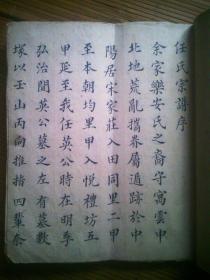 任氏宗譜序
余家樂安氏之裔守寓雲中
北地荒亂攜眷屬遁跡於中
陽居宋家莊入田同里二甲
至本朝均里甲入悅禮坊五
甲延至我任英公時在明季
弘治間英公墓之左有墓數
塚以壬山丙向推指四輩奈